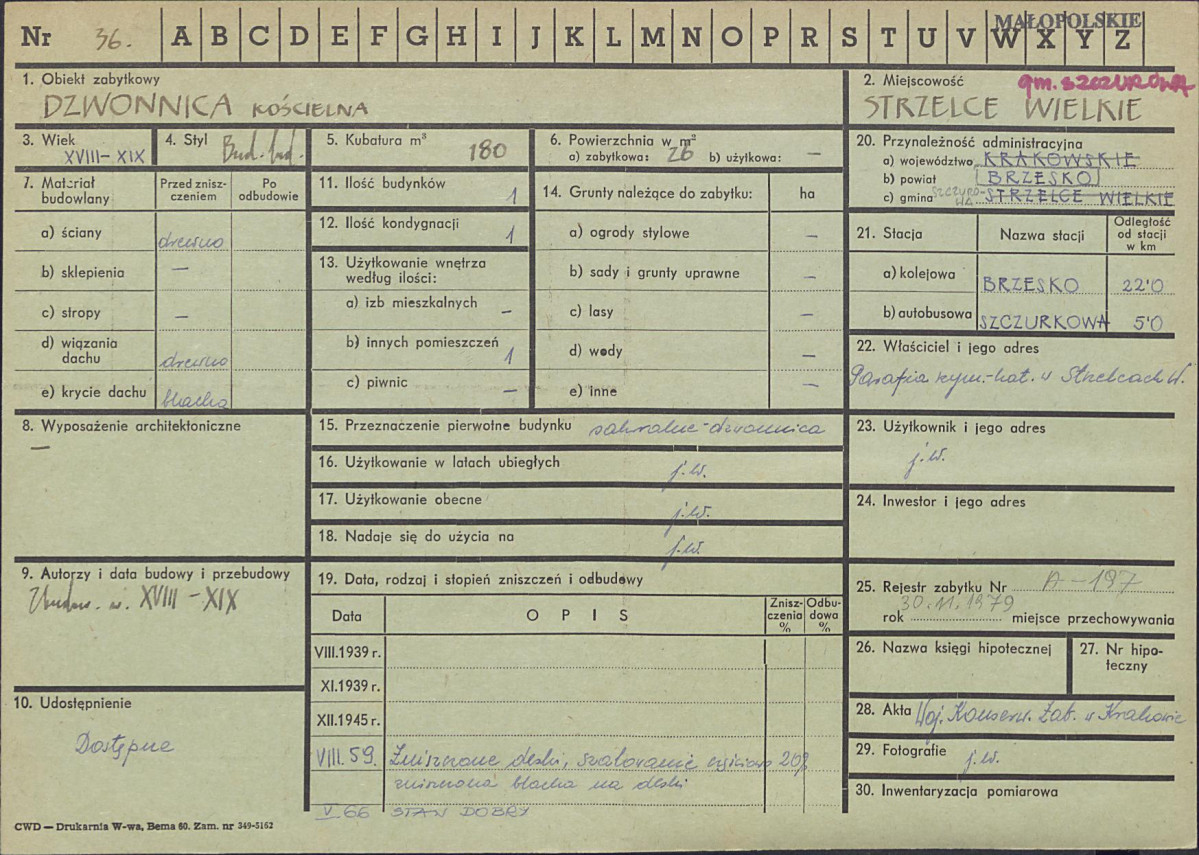 MAŁOPOLSKIE
Nr 36. A B C D E F G H I J K L M N O P R S T U V W X Y Z
1. Obiekt zabytkowy
DZWONNICA KOŚCIELNA
2. Miejscowość gm. SZCZUROWA
STRZELCE WIELKIE
3. Wiek
XVIII-XIX
4. Styl Bud. lud.
5. Kubatura m³ 180
6. Powierzchnia w m²
a) zabytkowa: 26 b) użytkowa: —
7. Materiał budowlany
Przed zniszczeniem
Po odbudowie
a) ściany drewno
b) sklepienia —
c) stropy —
d) wiązania dachu drewno
e) krycie dachu blacha
8. Wyposażenie architektoniczne
—
9. Autorzy i data budowy i przebudowy
XVIII-XIX
10. Udostępnienie
Dostępne
11. Ilość budynków 1
12. Ilość kondygnacji 1
13. Użytkowanie wnętrza
według ilości:
a) izb mieszkalnych –
b) innych pomieszczeń 1
c) piwnic –
14. Grunty należące do zabytku: ha
a) ogrody stylowe –
b) sady i grunty uprawne –
c) lasy –
d) wody –
e) inne –
15. Przeznaczenie pierwotne budynku sakralne-dzwonnica
16. Użytkowanie w latach ubiegłych j.w.
17. Użytkowanie obecne j.w.
18. Nadaje się do użycia na j.w.
19. Data, rodzaj i stopień zniszczeń i odbudowy
Data O P I S Zniszczenia % Odbudowa %
VIII.1939 r.
XI.1939 r.
XII.1945 r.
VIII.59. Zniszczone deski, szalowanie 20%
zniszczona blacha na deski
V 66 STAN DOBRY
20. Przynależność administracyjna
a) województwo KRAKOWSKIE
b) powiat BRZESKO
c) gmina SZCZUROWA STRZELCE WIELKIE
21. Stacja Nazwa stacji Odległość od stacji w km
a) kolejowa BRZESKO 22'0
b) autobusowa SZCZURKOWA 5'0
22. Właściciel i jego adres
Parafia rzym.-kat. w Strzelcach W.
23. Użytkownik i jego adres
j.w.
24. Inwestor i jego adres
25. Rejestr zabytku Nr A-197
30.11.1979
rok miejsce przechowywania
26. Nazwa księgi hipotecznej
27. Nr hipoteczny
28. Akta Woj. Konserw. Zab. w Krakowie
29. Fotografie j.w.
30. Inwentaryzacja pomiarowa
CWD — Drukarnia W-wa, Bema 60. Zam. nr 349-5162